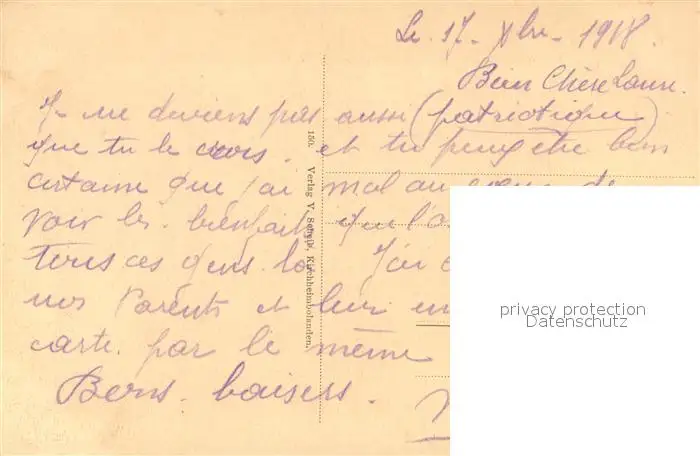 Le 17 - Xbre - 1918.
Bien Chère
Je ne deviens pas aussi (patriotique)
que tu le crois. et tu peux être bien
certaine que j'ai mal au de
voir les bienfaits que l'
tous ces gens là J'ai
nos Parents et leur
carte. par le même
Bons. baisers.
150. Verlag V. Kirchheimbolanden.
privacy protection
Datenschutz